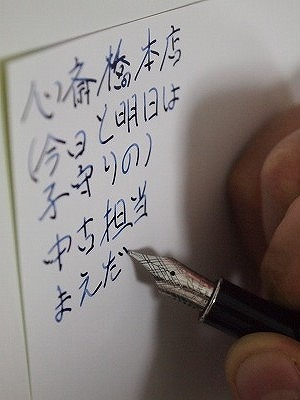 心斎橋本店
(今日と明日は
子守りの)
中古担当
まえだ